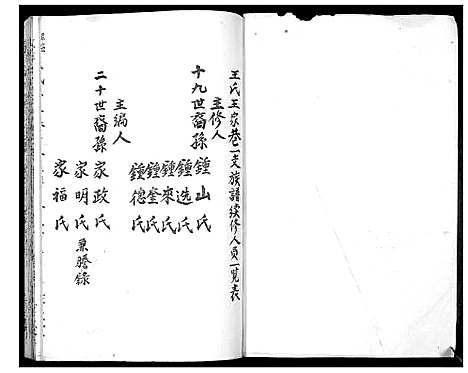 王氏王家巷一支族譜续修人员一覧表
主修人
十九世裔孫 鍾山氏
鍾选氏
鍾來氏
鍾奎氏
鍾德氏
主編人
二十世裔孫 家政氏
家明氏 兼謄錄
家福氏